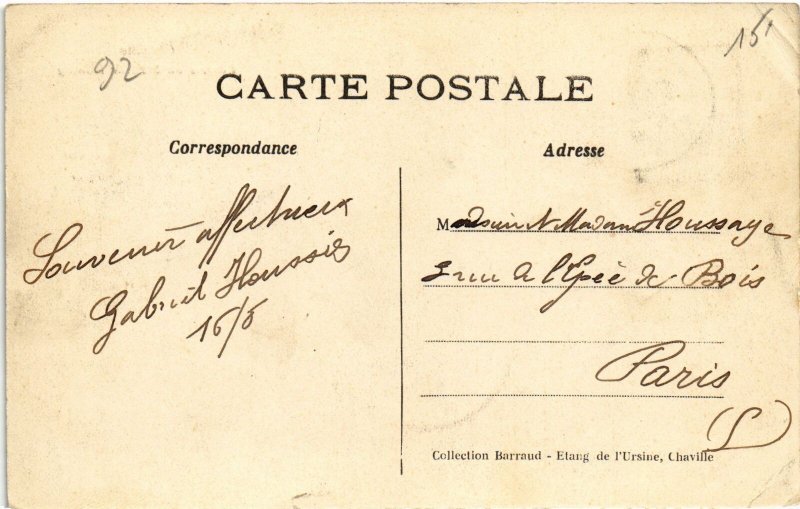 92
15
CARTE POSTALE
Correspondance
Adresse
Souvenir affectueux
Gabriel Houssin
16/5
M et Madame Houssaye
3 rue de l'Epée de Bois
Paris
Collection Barraud - Etang de l'Ursine, Chaville